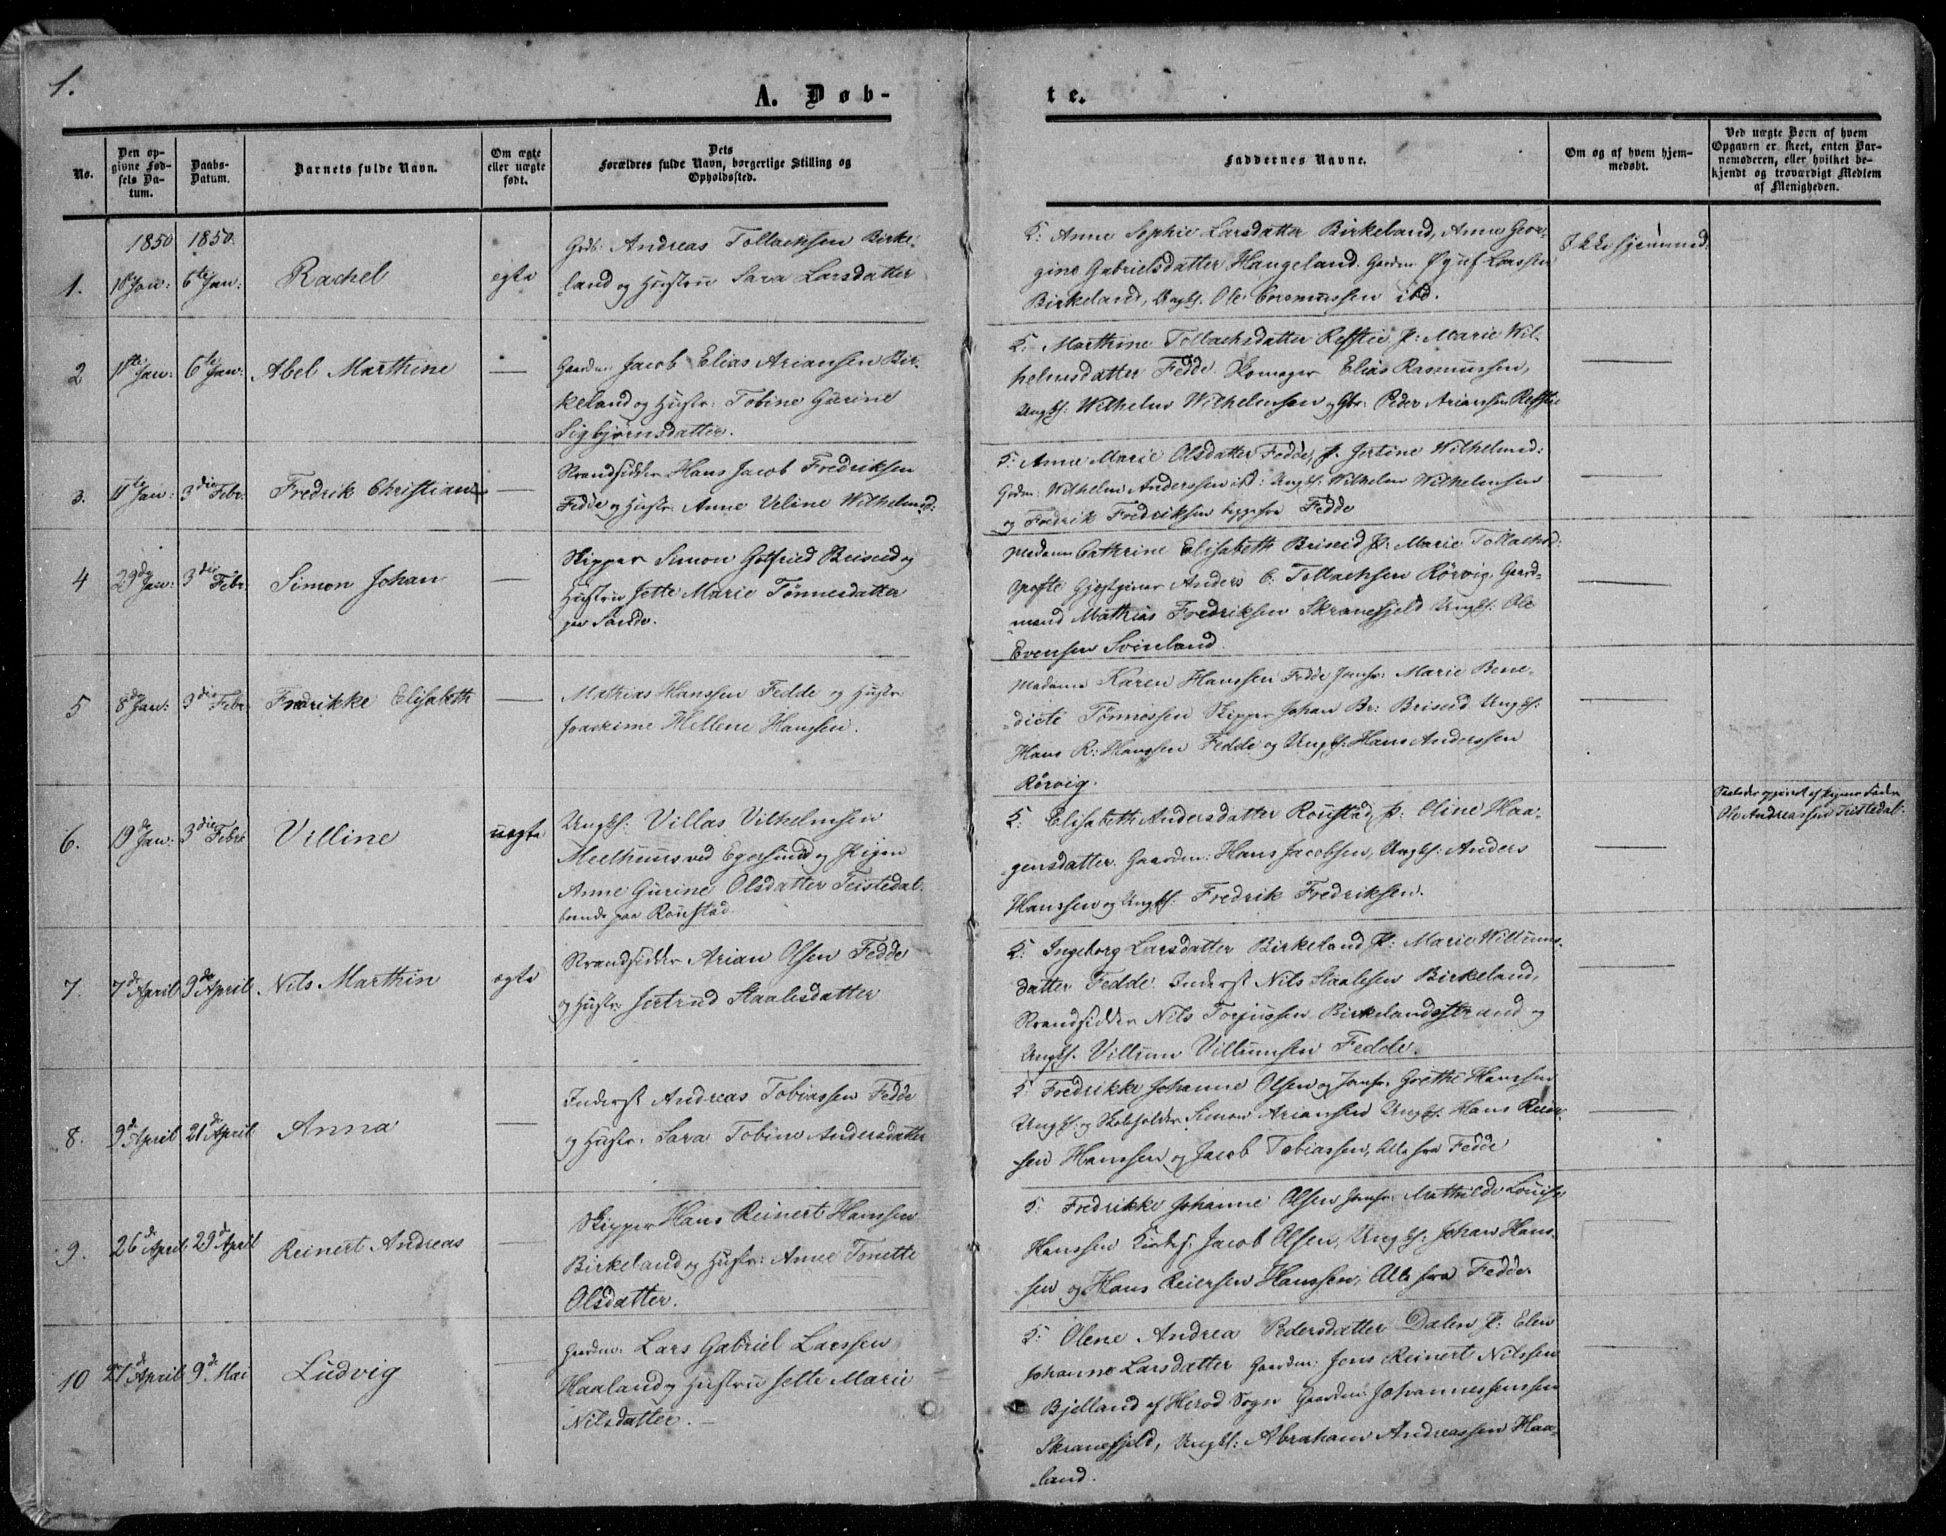 1.
A. Døb-
te.
No.
Den op-
givne Fød-
sels Da-
tum.
Daabs-
Datum.
Barnets fulde Navn.
Om ægte
eller uægte
født.
Dets
Forældres fulde Navn, borgerlige Stilling og
Opholdssted.
Faddernes Navne.
Om og af hvem hjem-
medøbt.
Ved uægte Børn af hvem
Opgaven er skeet, enten Bar-
nemoderen, eller hvilket be-
kjendt og troværdigt Medlem
af Menigheden.
1850 1850
1.
1st Jan: 6te Jan:
Rachel
egte
Grdb: Andreas Tollachsen Birke-
land og Hustru Sara Larsdatter
K: Anne Sophie Larsdatter Birkeland, Anne Geor-
gine Gabrielsdatter Haugeland. Gaardm: Larssen
Birkeland, Ungk. Ole Erasmussen ibd.
Ikke hjemmed:
2
1ste Jan: 6te Jan:
Abel Marthine
—
Gaardm: Jacob Elias Ariansen Bir-
keland og Hustr: Tobine Gurine
Sigbjørnsdatter.
K: Marthine Tollachsdatter Refstie, P: Marie Wil-
helmsdatter Fedde. Skomager Elias Rasmussen,
Ungk: Wilhelm Wilhelmsen og Gbr: Peder Ariansen Refstie
—
3.
11te Jan: 3die Febr:
Fredrik Christian
—
Strandsidder Hans Jacob Fredriksen
Fedde og Hustr: Anne Veline Wilhelmsd:
K: Anne Marie Olsdatter Fedde, P. Jertine Wilhelmsd:
Grdm: Wilhelm Anderssen ibd: Ungk: Wilhelm Wilhelmsen
og Fredrik Fredriksen begge fra Fedde
—
4
29de Jan: 3die Febr:
Simon Johan
—
Skipper Simon Gotfried Briseid og
Hustru Jette Marie Tønnesdatter
paa Sande.
Madame Cathrine Elisabeth Briseid P: Marie Tollachsd:
Gjestgiver Anders C. Tollachsen Rörvig, Gaard-
mand Mathias Fredriksen Skranefjeld Ungk: Ole
Evensen Svineland.
—
5
8de Jan: 3die Febr:
Fredrikke Elisabeth
—
Mathias Hanssen Fedde og Hustr
Joackime Hellene Hanssen.
Madame Karen Hanssen Fedde Jomfr: Marie Bene-
dicte Tönnessen Skipper Johan Br: Briseid Ungk:
Hans R: Hanssen Fedde og Ungk: Hans Anderssen
Rörvig.
—
6.
19de Jan: 3die Febr:
Villine
uægte
Ungk: Villas Vilhelmsen
Meelhuus ved Egersund og Pigen
Anne Gurine Olsdatter Teistedal
boende paa Roustad.
K: Elisabeth Andersdatter Roustad, P: Oline Haa-
gensdatter. Gaardm: Hans Jacobsen, Ungk: Anders
Hanssen og Ungk. Fredrik Fredriksen.
—
af Pigens Fader
Ole Andreassen Teistedal.
7.
7de April 9de April
Nils Marthin
egte
Strandsidder Arian Olsen Fedde
og Hustr: Jertrud Staalesdatter
K: Ingeborg Larsdatter Birkeland P: Marie Willums-
datter Fedde. Inderst Nils Staalesen Birkeland,
Strandsidder Nils Torjussen Birkelandsstrand og
Ungk. Villum Villumsen Fedde.
—
8.
9de April 21de April
Anna
Inderst Andreas Tobiassen Fedde
og Hustr: Sara Tobine Andersdatter
K Fredrikke Johanne Olsen og Jomfr Grethe Hanssen
Ungk: og Skoleholder Simon Ariansen Ungk. Hans Reier-
sen Hanssen og Jacob Tobiassen, Alle fra Fedde
—
9.
26de April 29de April
Reinert Andreas
—
Skipper Hans Reinert Hanssen
Birkeland og Hustr: Anne Tonette
Olsdatter.
K: Fredrikke Johanne Olsen Jomfr: Mathilde Louise
Hanssen Kirkes: Jacob Olsen, Ungk: Johan Hans-
sen og Hans Reiersen Hanssen, Alle fra Fedde
—
10
27de April 9de Mai
Ludvig
—
Gaardm: Lars Gabriel Larssen
Haaland og Hustru Jette Marie
Nilsdatter.
K: Olene Andrea Pedersdatter Dalen P: Elen
Johanne Larsdatter Gaardm: Jens Reinert Nilssen
Bjelland af Herod Sogn Gaardm: Johannes Jenssen
Skranefjeld, Ungk: Abraham Andreassen Haa-
land.
—